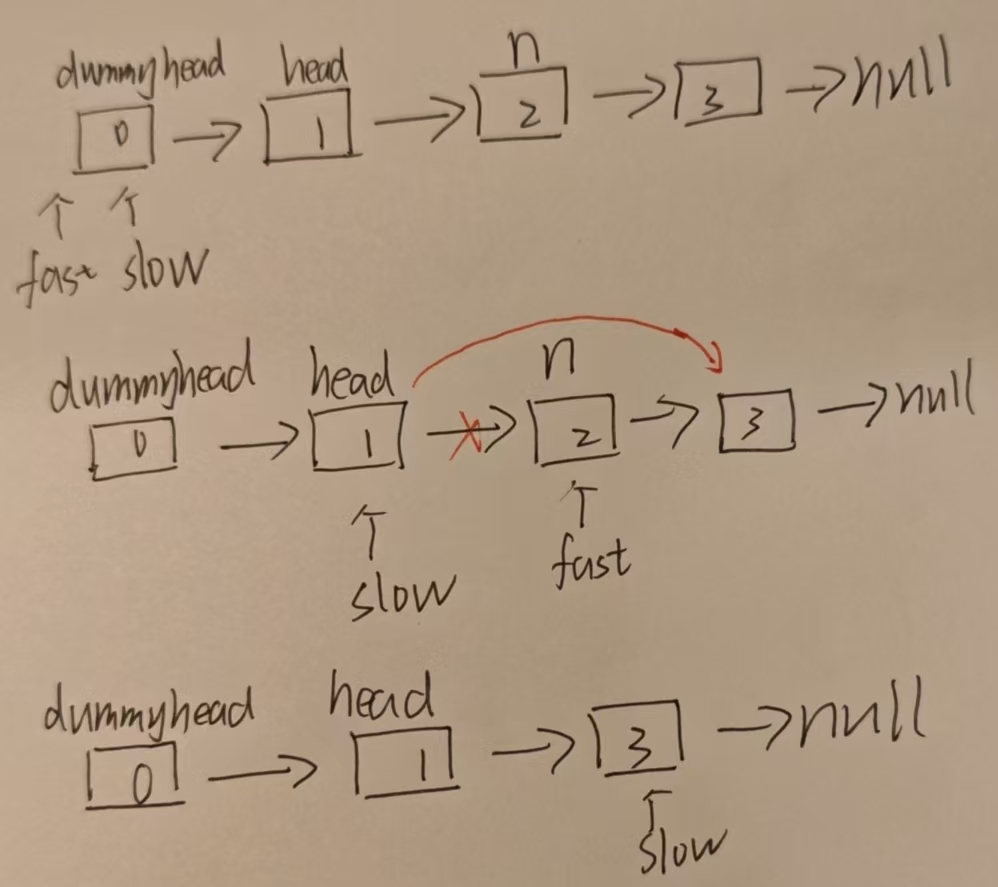 dummyhead head n
0 → 1 → 2 → 3 → null
↑ ↑
fast slow
dummyhead head n
0 → 1 → 2 → 3 → null
↑ ↑
slow fast
dummyhead head
0 → 1 → 3 → null
↑
slow